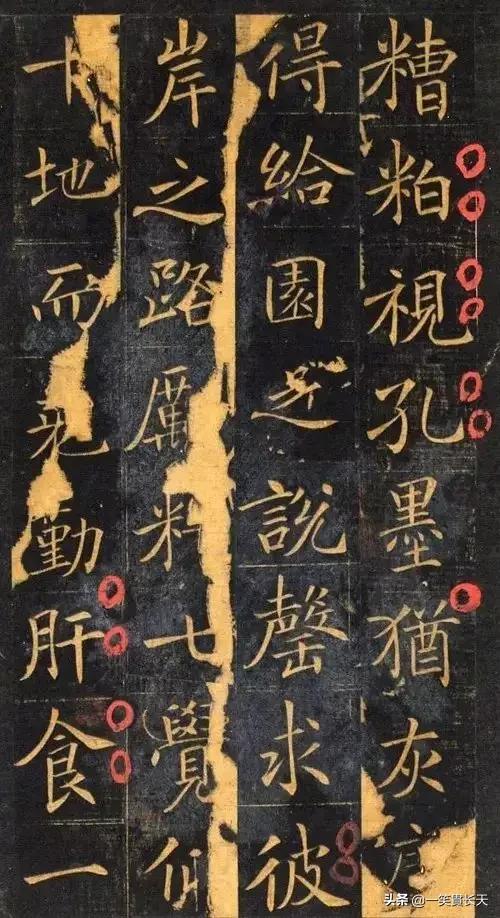 糟粕視孔墨猶灰
得給園之說罄求彼
岸之路厲料七覺
十地而勤肝食一
头条 @一笑貫长天